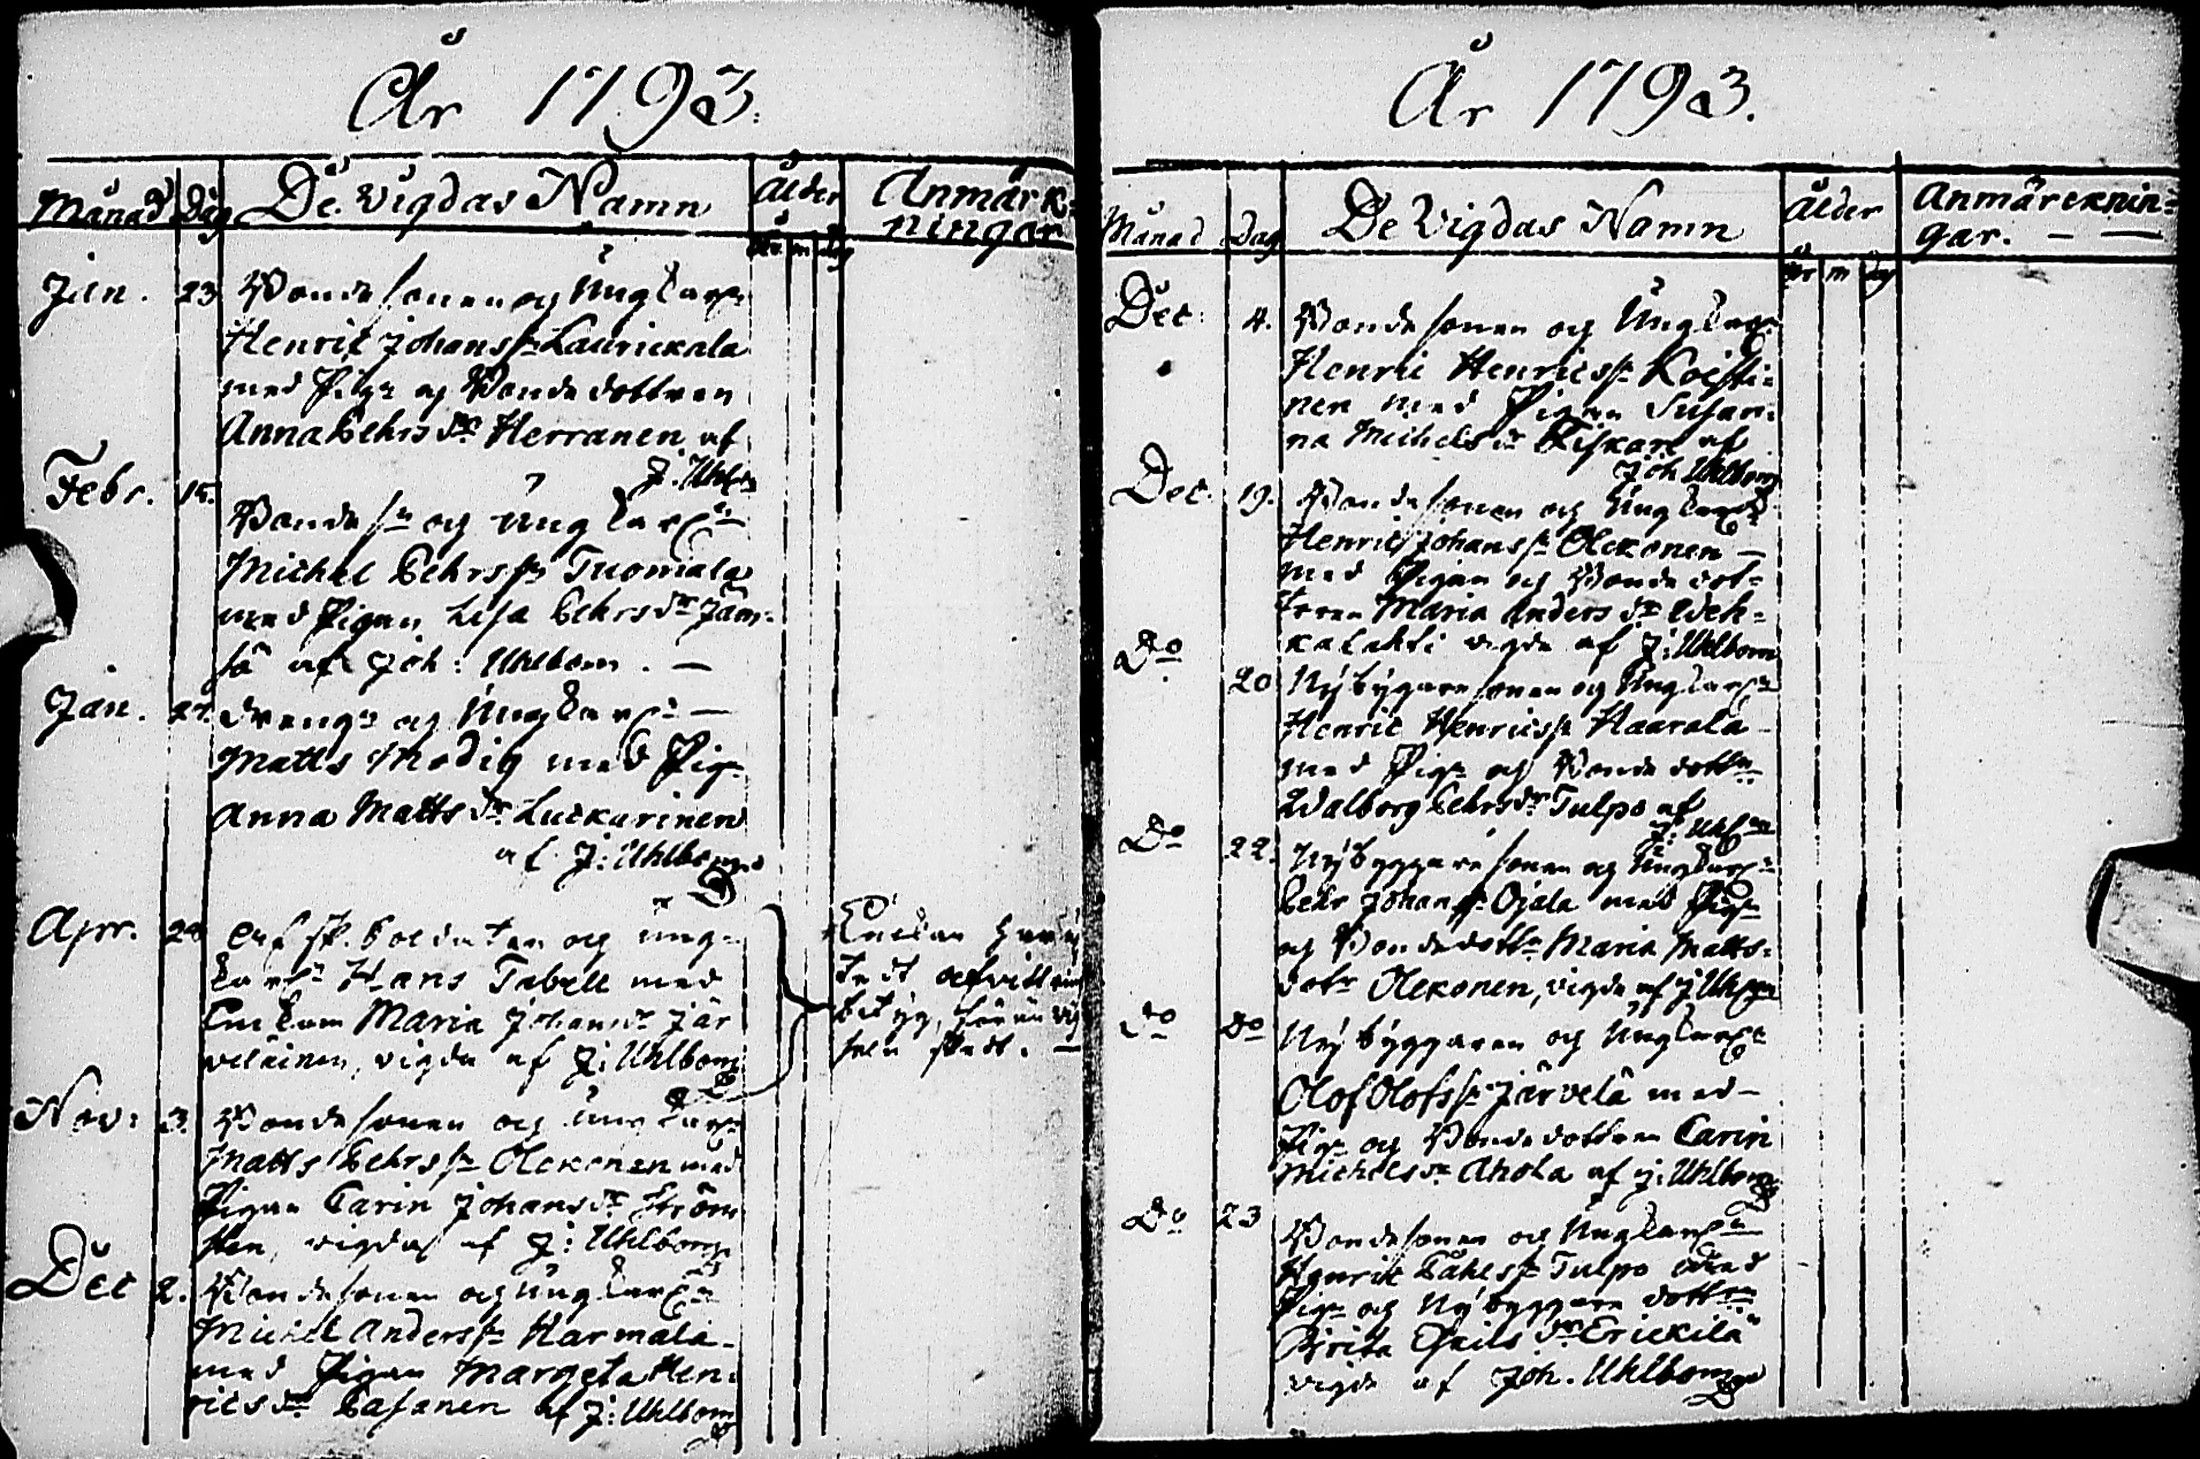 År 1793.
Månad Dag De Vigdas Namn Ålder Anmärk=
ningar
år m dg
Jan. 23 Bonde sonen og Ungkarln
Henrik Johanss. Laurickala
med Pign og Bonde dottren
Anna Pehrs dr Herranen af
J. Uhlbm
Febr. 15. Bonde sn og Ungkarln
Michel Pehrss. Tuomala
med Pigan Lisa Pehrs dr Jäm=
sä af Joh: Uhlbom. —
Jan. 27. Drengn og Ungkarln —
Matts Modig med Pign
Anna Matts dr Luckarinen
af J: Uhlbom
Apr. Soldaten og ung=
karln Hans Tabell med
Enckan Maria Johans dr Jär
veläinen, vigde af J: Uhlbom
Enckan
tedt
betyg, förän vig
seln skedt. —
Nov: 3. Bonde sonen og Ungkarln
Matts Pehrss. Olckonen med
Pigan Carin Johans dr Ström
sten, vigdes af J: Uhlbom
Dec 2. Bonde sonen og Ungkarln
Michel Anderss. Harmala
med Pigan Margeta Hen=
rics dr Pasanen af J: Uhlbom
År 1793.
Månad Dag De Vigdas Namn Ålder Anmärcknin=
gar. — —
år m dg
Dec: 4. Bonde sonen og Ungkarln
Henric Henricss. Koisti=
nen med Pigan Susan=
na Michels dr Fiskare af
Joh Uhlbom
Dec. 19. Bonde sonen og Ungkarln
Henric Johanss. Olckonen —
med Pigan og Bonde dot=
tren Maria Anders dr Weh=
kalahti vigde af J: Uhlbom
Do 20 Nybygare sonen og Ungkarln
Henric Henricss. Haarala
med Pign og Bonde dottn
Walborg Pehrs dr Tulpo af
J: Uhlbm
Do 22. Nybyggare sonen og Ungkarln
Pehr Johanss. Ojala med Pign
og Bonde dottn Maria Matts=
dotr Olckonen, vigde af J Uhlbm
Do Do Nybyggaren og Ungkarln
Olof Olofss. Järvelä med —
Pign og Bonde dottren Carin
Michels dr Ahola af J: Uhlbom
Do 23 Bonde sonen og Ungkarln
Henric Påhlss. Tulpo med
Pign og Nybyggare dottrn
Brita Eskils dr Erickilä
vigde af Joh. Uhlbom